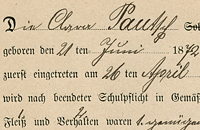 Die Clara Pautsch
geboren den 21ten Juni 1872,
zuerst eingetreten am 26ten April
wird nach beendeter Schulpflicht in Gemäß
Fleiß und Verhalten waren 1. genügen